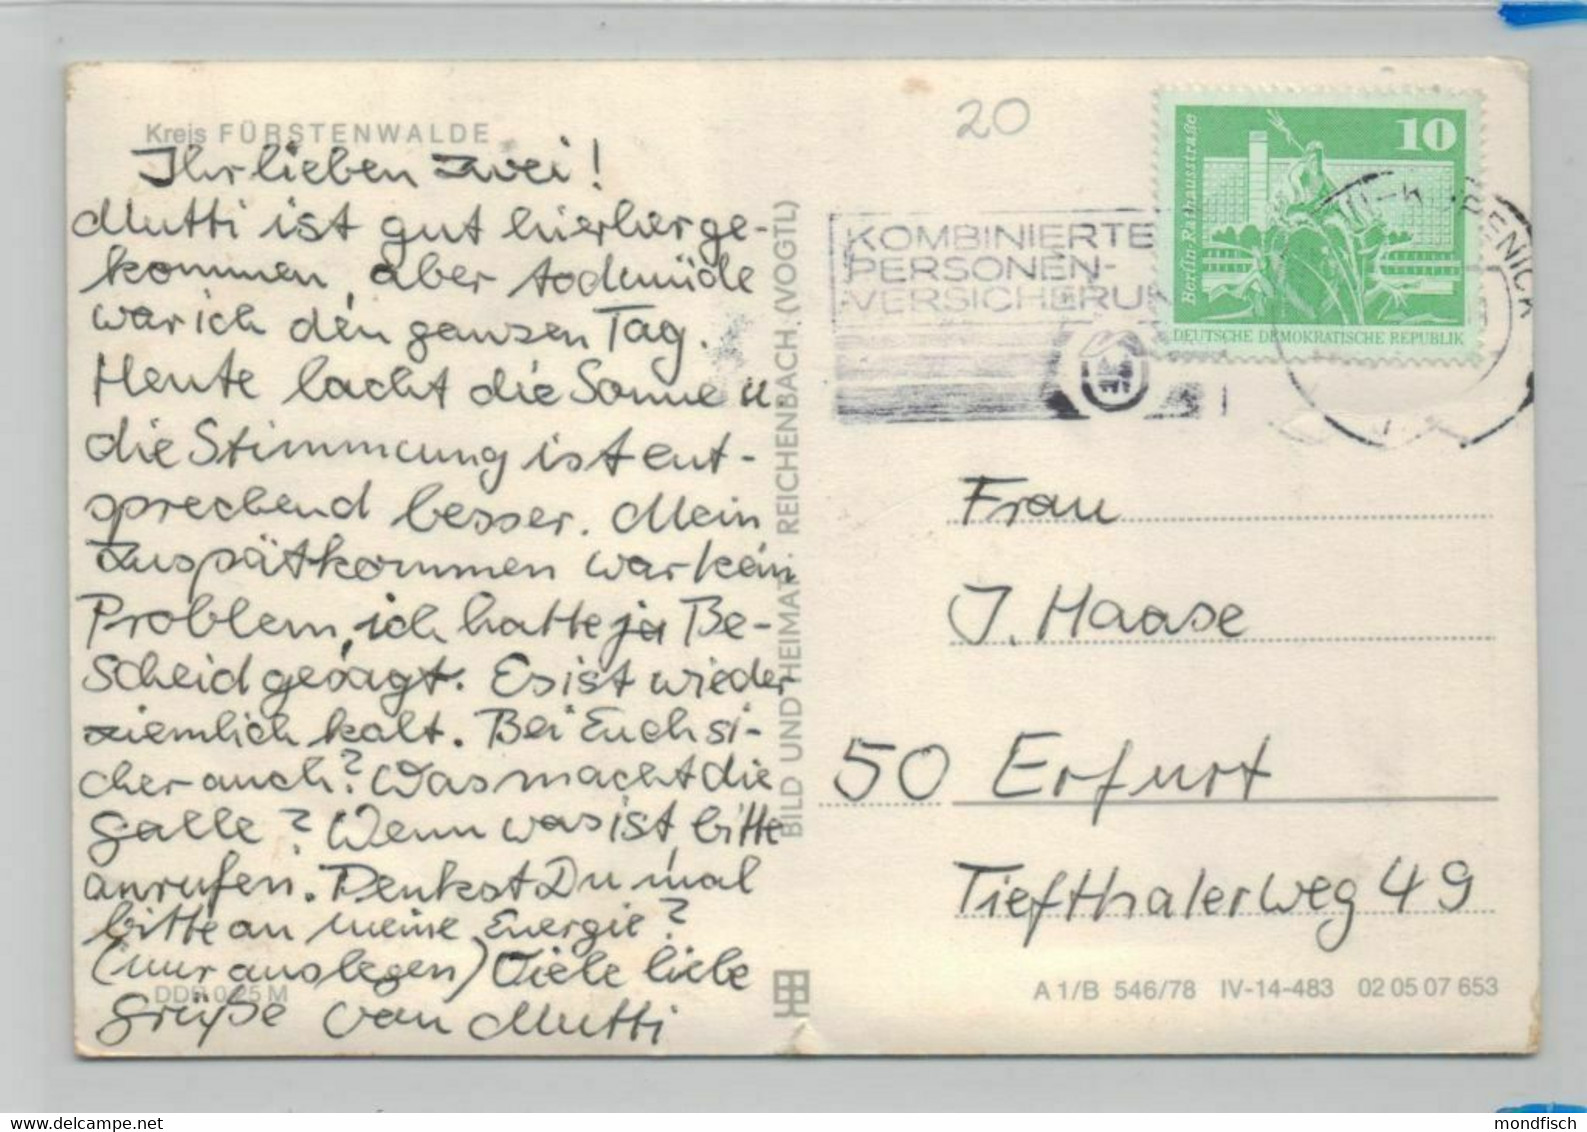 Kreis FÜRSTENWALDE
Ihr lieben zwei!
Mutti ist gut hierherge-
kommen, aber todmüde
war ich den ganzen Tag.
Heute lacht die Sonne u.
die Stimmung ist ent-
sprechend besser. Mein
Zuspätkommen war kein
Problem, ich hatte ja Be-
scheid gesagt. Es ist wieder
ziemlich kalt. Bei Euch si-
cher auch? Was macht die
Galle? Wenn was ist bitte
anrufen. Denkst Du mal
bitte an meine Energie?
(nur auslegen) Viele liebe
Grüße von Mutti
DDR 0,25 M
BILD UND HEIMAT · REICHENBACH (VOGTL)
20
10
Berlin-Rathausstraße
DEUTSCHE DEMOKRATISCHE REPUBLIK
KOMBINIERTE
PERSONEN-
VERSICHERUN
Frau
J. Haase
50 Erfurt
Tiefthalerweg 49
A 1/B 546/78 IV-14-483 02 05 07 653
mondfisch